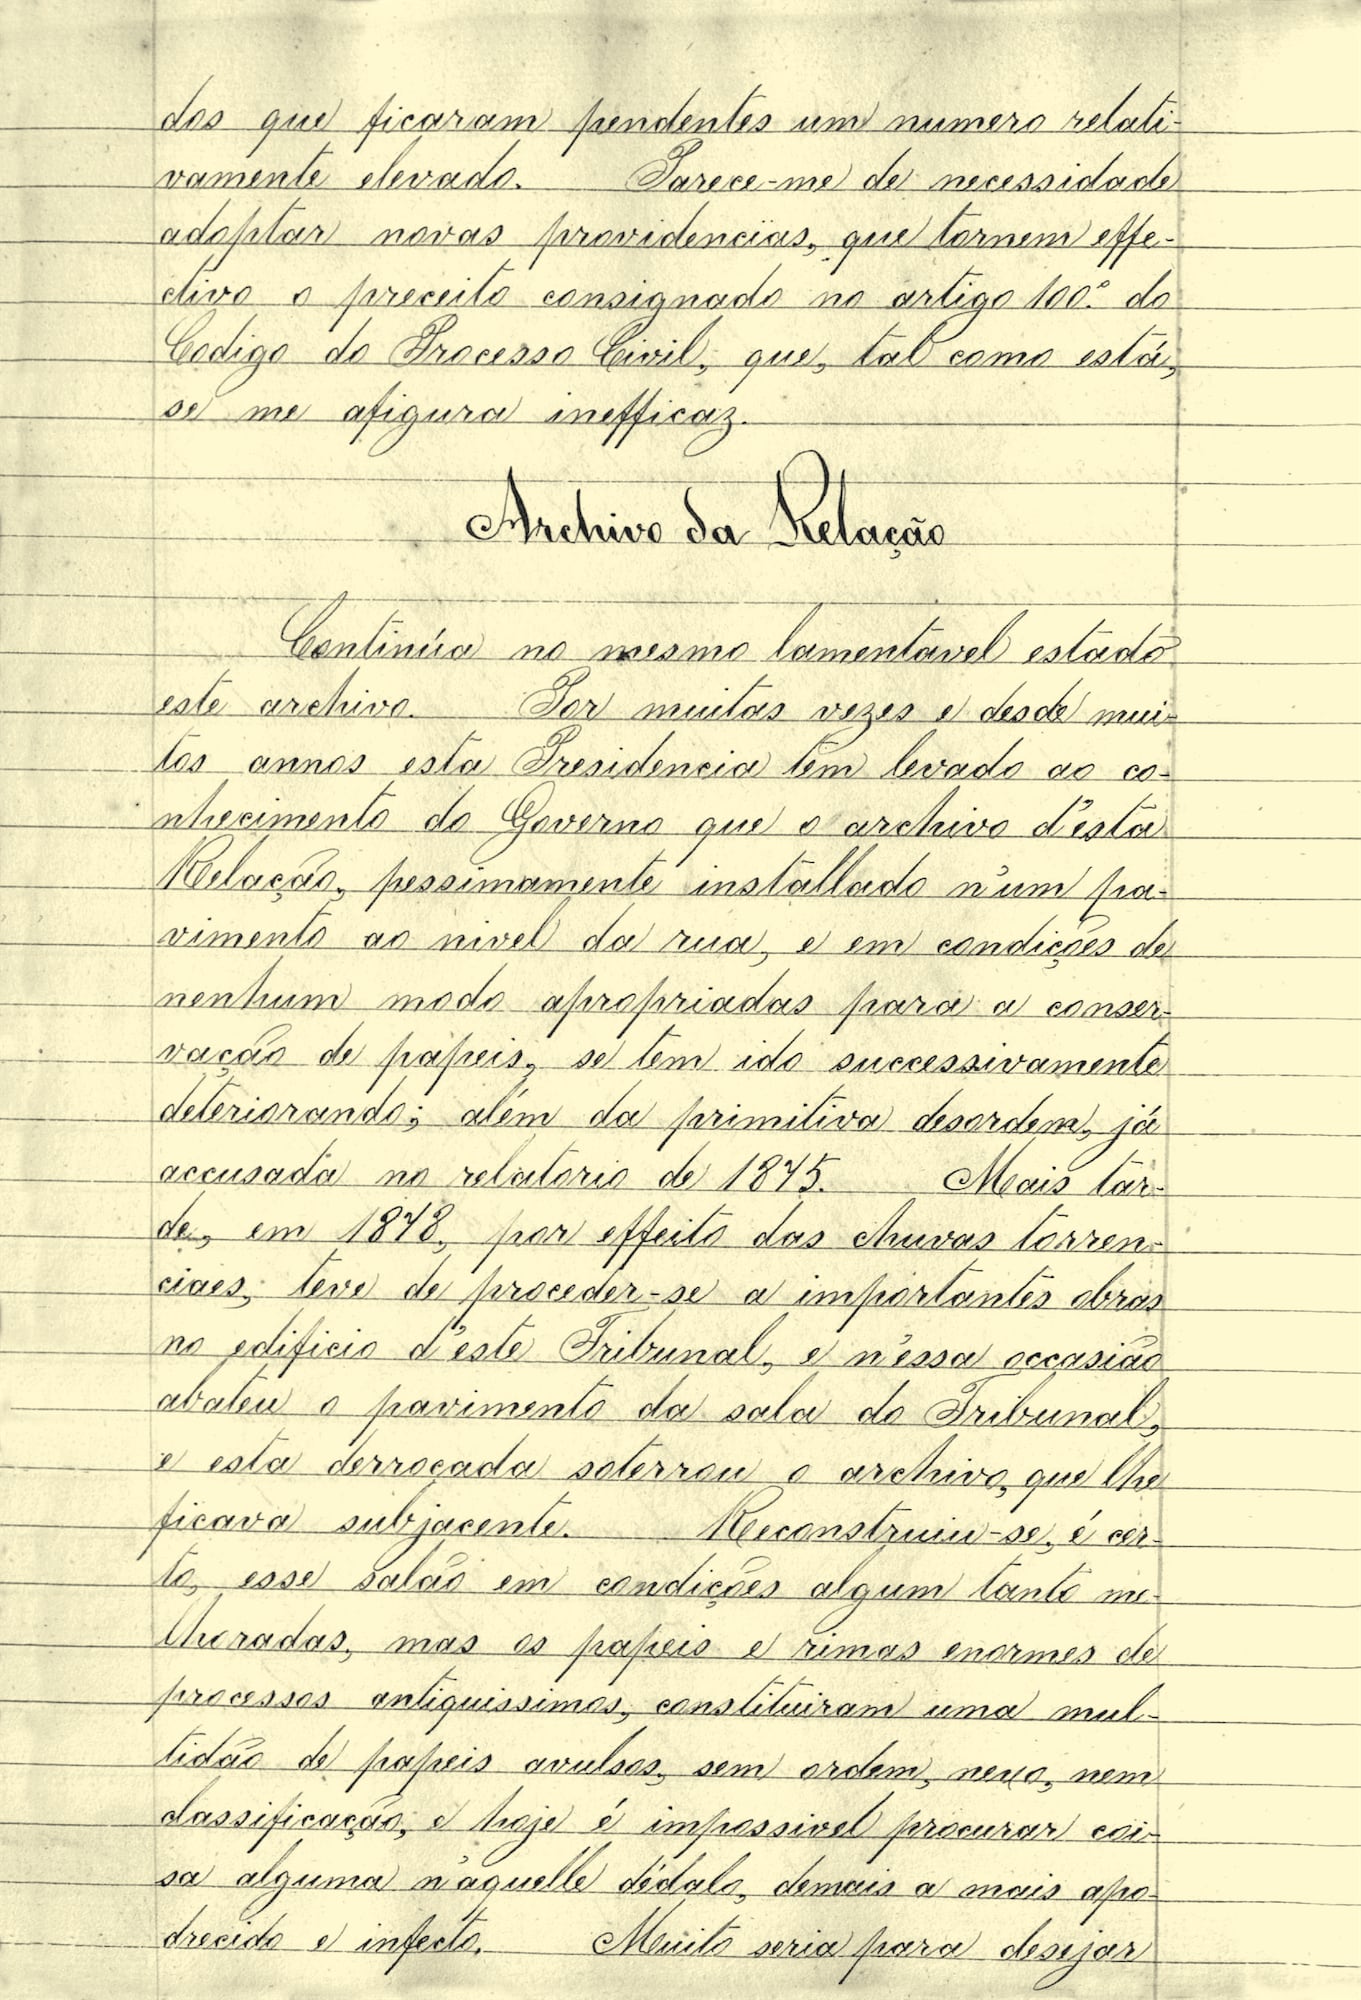 dos que ficaram pendentes um numero relati-
vamente elevado. Parece-me de necessidade
adoptar novas providencias, que tornem effe-
ctivo o preceito consignado no artigo 100.º do
Codigo do Processo Civil, que, tal como está,
se me afigura inefficaz.
Archivo da Relação
Continúa no mesmo lamentavel estado
este archivo. Por muitas vezes e desde mui-
tos annos esta Presidencia tem levado ao co-
nhecimento do Governo que o archivo d'esta
Relação, pessimamente installado n'um pa-
vimento ao nivel da rua, e em condições de
nenhum modo apropriadas para a conser-
vação de papeis, se tem ido successivamente
deteriorando; além da primitiva desordem, já
accusada no relatorio de 1875. Mais tar-
de, em 1878, por effeito das chuvas torren-
ciaes, teve de proceder-se a importantes obras
no edificio d'este Tribunal, e n'essa occasião
abateu o pavimento da sala do Tribunal,
e esta derrocada soterrou o archivo, que lhe
ficava subjacente. Reconstruiu-se, é cer-
to, esse salão em condições algum tanto me-
lhoradas, mas os papeis e rimas enormes de
processos antiquissimos, constituiram uma mul-
tidão de papeis avulsos, sem ordem, nexo, nem
classificação, e hoje é impossivel procurar coi-
sa alguma n'aquelle dédalo, demais a mais apo-
drecido e infecto. Muito seria para desejar